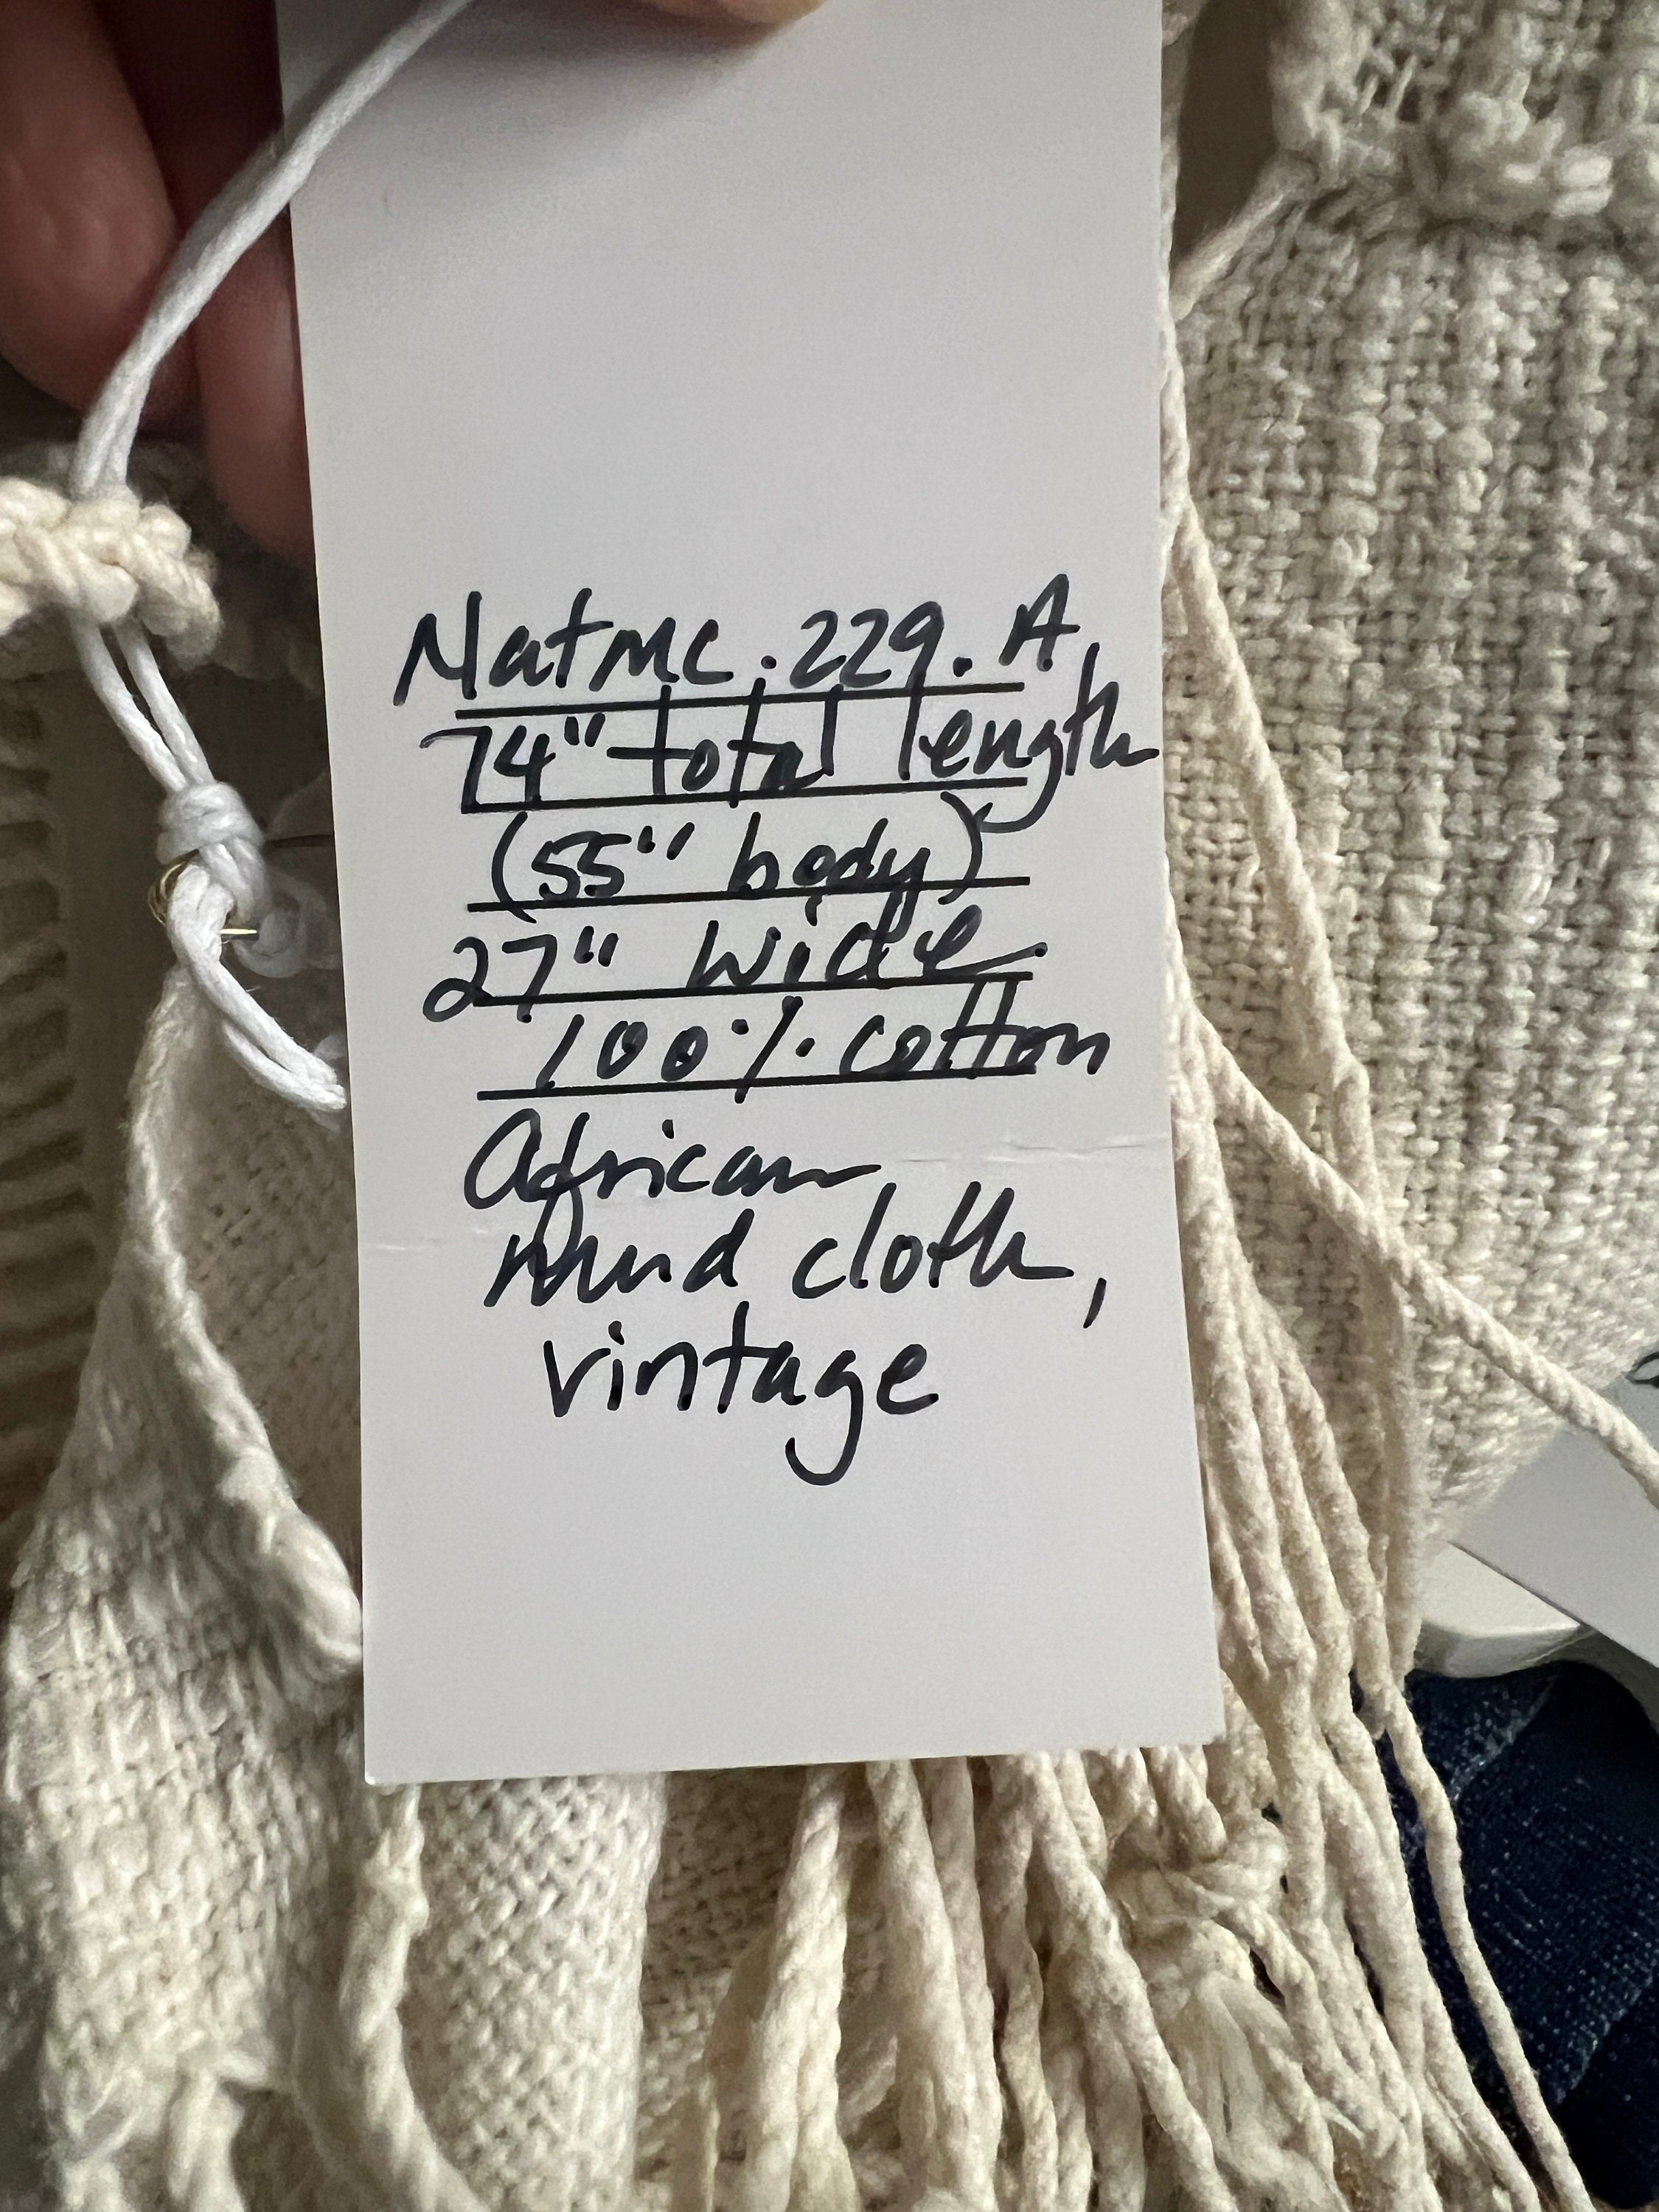 NatMC.229.A
74" total length
(55" body)
27" wide
100% cotton
African
Mud cloth,
vintage